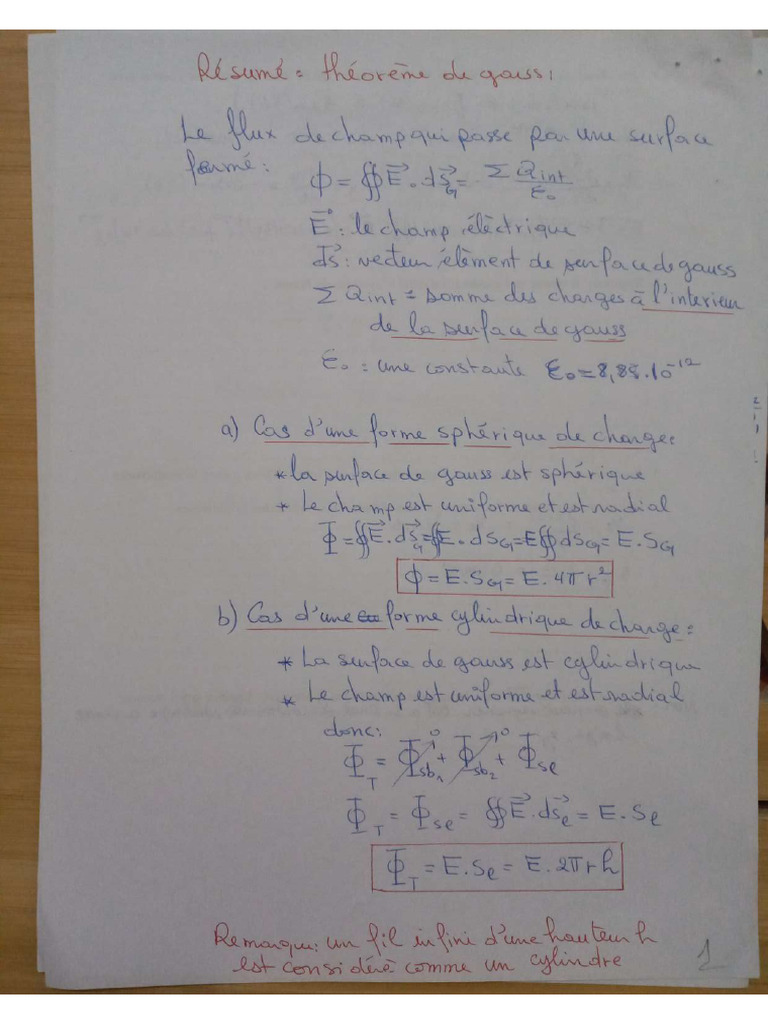 Résumé : théorème de gauss :
Le flux de champ qui passe par une surface
fermé : ϕ = ∯ E⃗ . dS⃗_G = Σ Qint / ε₀
E⃗ : le champ éléctrique
dS⃗ : vecteur élément de surface de gauss
Σ Qint = somme des charges à l'interieur
de la surface de gauss
ε₀ : une constante ε₀ = 8,85.10⁻¹²
a) Cas d'une forme sphérique de charge :
* la surface de gauss est sphérique
* Le champ est uniforme et est radial
Φ = ∯ E⃗ . dS⃗_G = ∯ E . dS_G = E ∯ dS_G = E . S_G
ϕ = E . S_G = E . 4πr²
b) Cas d'une forme cylindrique de charge :
* La surface de gauss est cylindrique
* Le champ est uniforme et est radial
donc :
Φ_T = Φ_sb₁ + Φ_sb₂ + Φ_Sl
Φ_T = Φ_Sl = ∯ E⃗ . dS⃗_l = E . S_l
Φ_T = E . S_l = E . 2πrh
Remarque : un fil infini d'une hauteur h
est considéré comme un cylindre
1